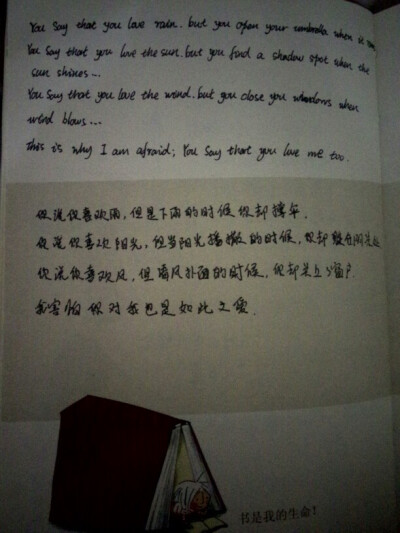 You say that you love rain. but you open your umbrella when it
You say that you love the sun. but you find a shadow spot when the
sun shines...
You say that you love the wind. but you close you windows when
wind blows...
This is why I am afraid; You say that you love me too.
你说你喜欢雨,但是下雨的时候你却撑伞.
你说你喜欢阳光,但当阳光播撒的时候,你却躲在阴凉处
你说你喜欢风,但清风扑面的时候,你却关上了窗户.
我害怕你对我也是如此之爱.
书是我的生命!